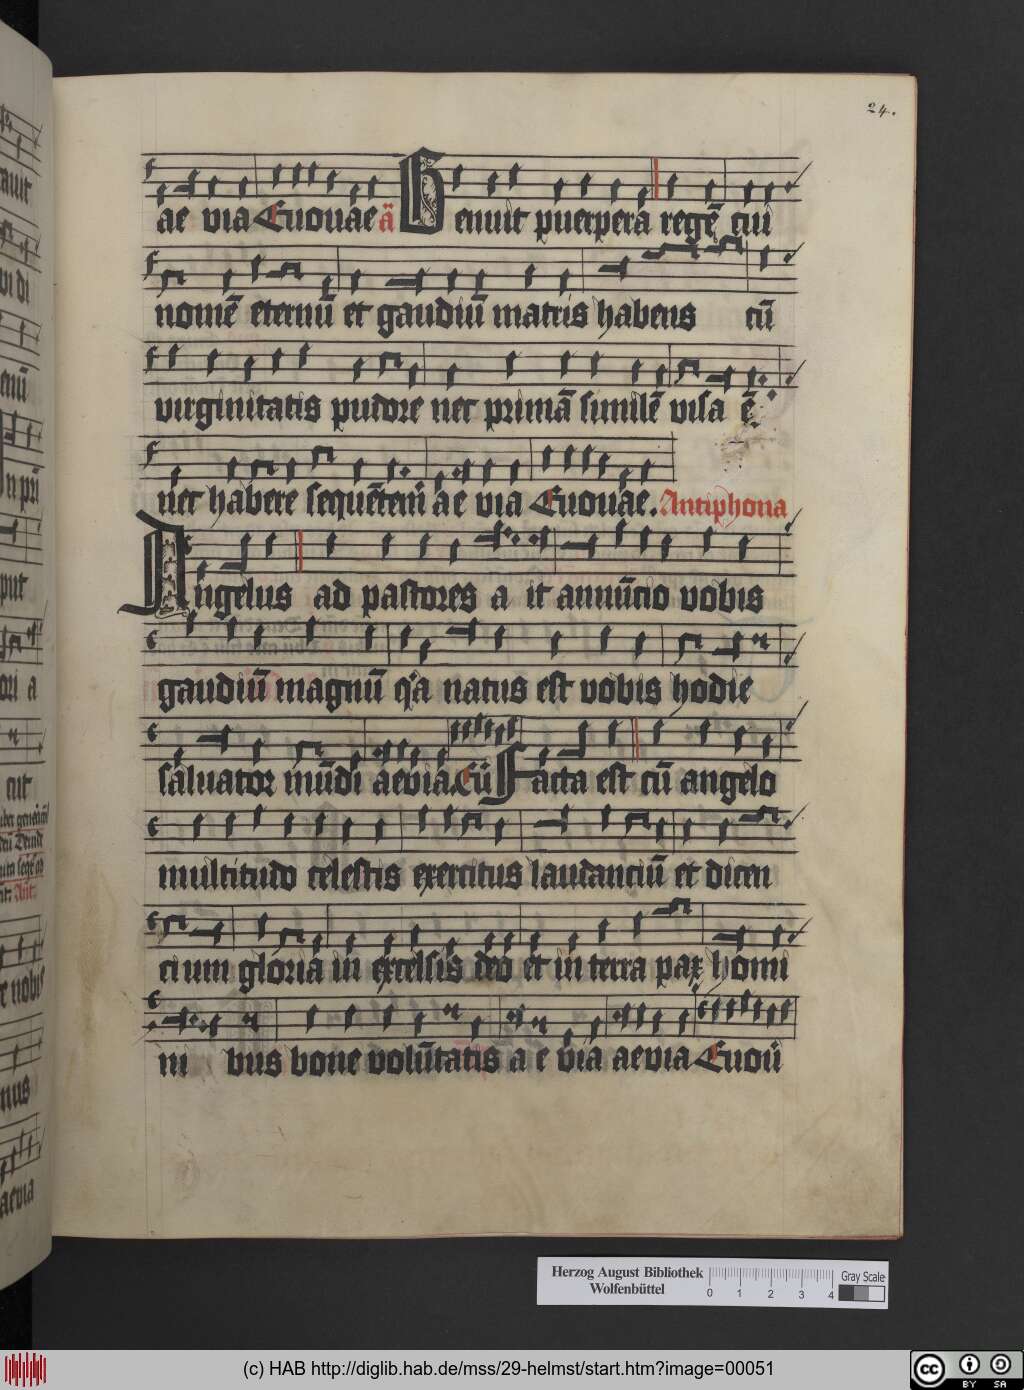 24.
ae via Euouae ā Genuit puerpera regē cui
nomē eternū et gaudiū matris habens cū
virginitatis pudore nec primā similē visa ē
nec habere sequētem ae via Euouae. Antiphona
Angelus ad pastores a it annūcio vobis
gaudiū magnū q͛a natus est vobis hodie
saluator mūdi aevia Eū Facta est cū angelo
multitudo celestis exercitus laudanciū et dicen
ci um gloria in excelsis deo et in terra pax homi
ni bus bone volūtatis a e via aevia Euoū
Herzog August Bibliothek
Wolfenbüttel
0 1 2 3 4
Gray Scale
(c) HAB http://diglib.hab.de/mss/29-helmst/start.htm?image=00051
cc BY SA